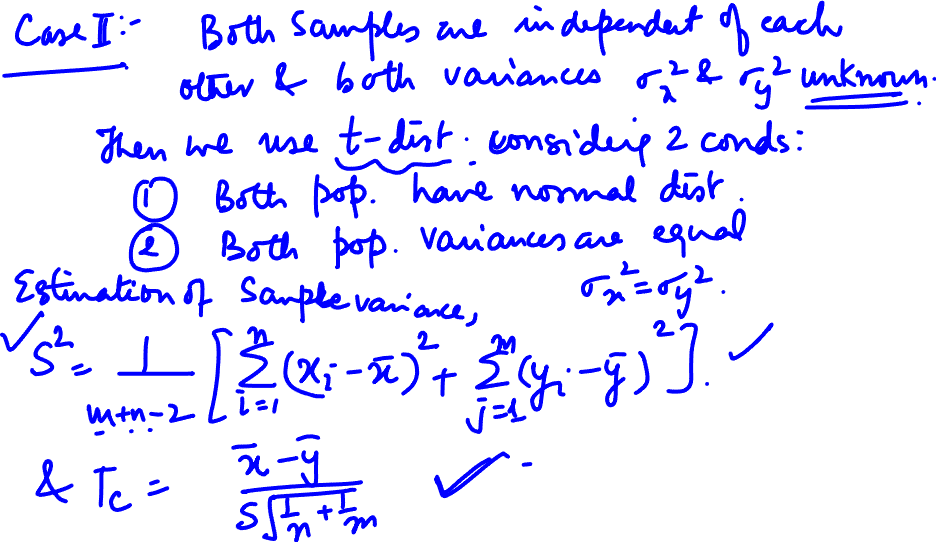 Case II:- Both samples are independent of each
other & both variances σₓ² & σᵧ² unknown.
Then we use t-dist. considering 2 conds:
① Both pop. have normal dist.
② Both pop. variances are equal
σₓ² = σᵧ².
Estimation of Sample variance,
✓ S² = 1/(m+n-2) [ Σᵢ₌₁ⁿ (xᵢ - x̄)² + Σⱼ₌₁ᵐ (yᵢ - ȳ)² ]. ✓
& T_c = (x̄ - ȳ) / (S√(1/n + 1/m)) ✓ -